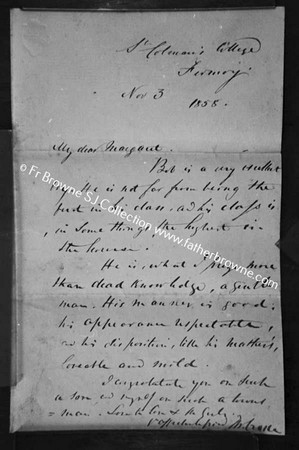 St Colman's College
Fermoy
Nov 3
1858.
My dear Margaret.
Bob is a very excellent
boy. He is not far from being the
best in his class. and his class is
, in some things, the highest in
the house.
He is, what I prize more
than dead knowledge, a gentle
man. His manner is good;
his appearance respectable,
and his disposition, like his mother's,
loveable and mild.
I congratulate you on such
a son and myself on such a
man.
© Fr Browne S.J. Collection www.fatherbrowne.com